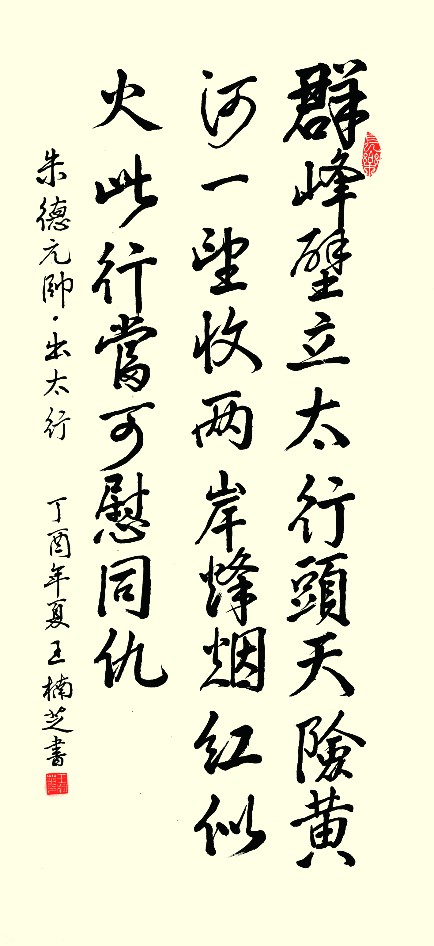 群峰壁立太行頭天險黄
河一望收两岸烽烟紅似
火此行當可慰同仇
朱德元帥·出太行
丁酉年夏王楠芝書